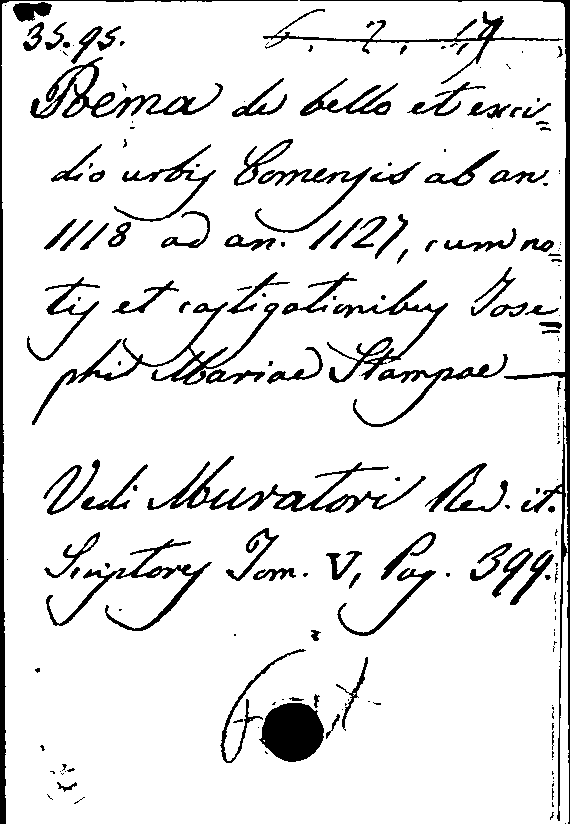 35.95.
6. 2. 17
Poëma de bello et exci=
dio urbis Comensis ab an.
1118 ad an. 1127, cum no=
tis et castigationibus Jose=
phi Mariae Stampae —
Vedi Muratori Rer. it.
Scriptores Tom. V, Pag. 399.